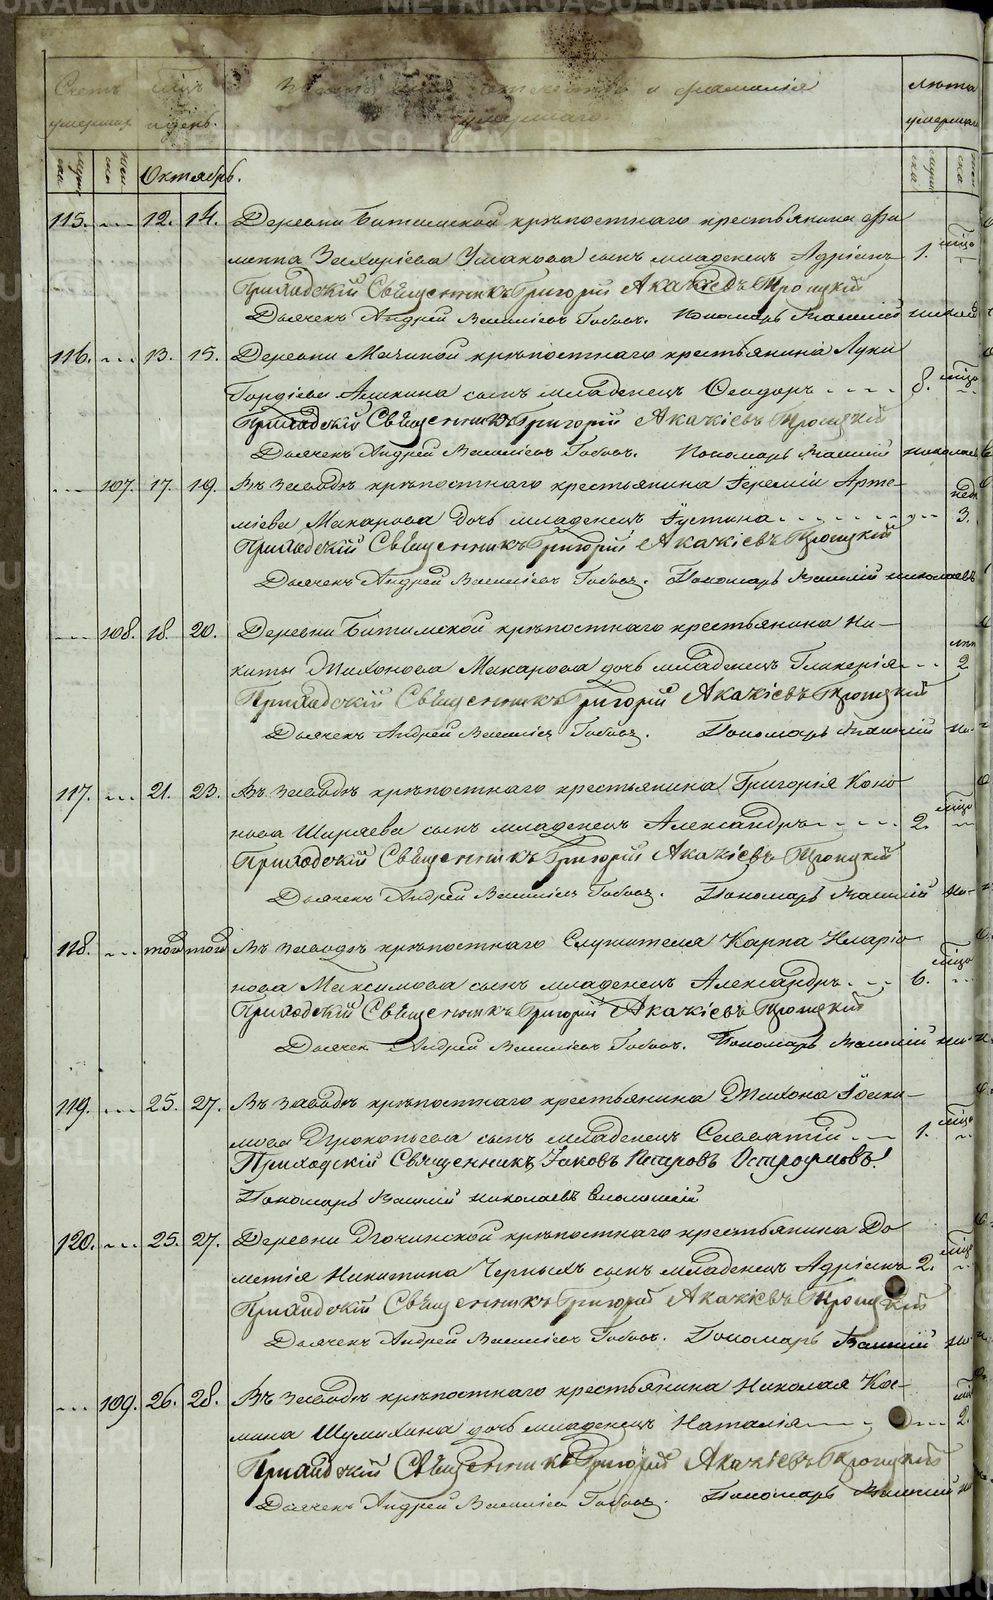 METRIKI.GASO-URAL.RU
Счетъ умершихъ. мѣс. и день. и фамилія умершаго. Лѣта умершаго
Октябрь.
115. --- 12. 14. Деревни Битимской крѣпостнаго крестьянина Фи-
липпа Захаріева Ушакова сынъ младенецъ Адріанъ 1. мѣсц.
Приходскій Священникъ Григорій Акакіевъ Троицкій
Дьячекъ Андрей Васильевъ Пономарь
116. --- 13. 15. Деревни Мачиной крѣпостнаго крестьянина Луки
Гордѣева сынъ младенецъ Ѳеодоръ 8. мѣсц.
Приходскій Священникъ Григорій Акакіевъ Троицкій
Дьячекъ Андрей Васильевъ Пономарь Николаевъ
--- 107. 17. 19. Въ заводѣ крѣпостнаго крестьянина Іереміи Арте-
міева Макарова дочь младенецъ Іустина нед. 3.
Приходскій Священникъ Григорій Акакіевъ Троицкій
Дьячекъ Андрей Васильевъ Пономарь Николаевъ
--- 108. 18. 20. Деревни Битимской крѣпостнаго крестьянина Ни-
киты Тихонова Макарова дочь младенецъ Гликерія 2
Приходскій Священникъ Григорій Акакіевъ Троицкій
Дьячекъ Андрей Васильевъ Пономарь
117. --- 21. 23. Въ заводѣ крѣпостнаго крестьянина Григорія Коно-
нова Ширяева сынъ младенецъ Александръ 2. мѣсц.
Приходскій Священникъ Григорій Акакіевъ Троицкій
Дьячекъ Андрей Васильевъ Пономарь
118. --- того того Въ заводѣ крѣпостнаго служителя Карпа Иларіо-
нова Максимова сынъ младенецъ Александръ 6. мѣсц.
Приходскій Священникъ Григорій Акакіевъ Троицкій
Дьячек Андрей Васильевъ Пономарь
119. --- 25. 27. Въ заводѣ крѣпостнаго крестьянина Тихона Іоаки-
мова Прокопьева сынъ младенецъ Савватій 1. мѣсц.
Приходскій Священникъ Іаковъ Петровъ
Пономарь Николаевъ
120. --- 25. 27. Деревни крѣпостнаго крестьянина До-
метія Никитина Черныхъ сынъ младенецъ Адріанъ 2. мѣсц.
Приходскій Священникъ Григорій Акакіевъ Троицкій
Дьячекъ Андрей Васильевъ Пономарь
--- 109. 26. 28. Въ заводѣ крѣпостнаго крестьянина Николая Кос-
мина Шумихина дочь младенецъ Наталія 2.
Приходскій Священникъ Григорій Акакіевъ Троицкій
Дьячекъ Андрей Пономарь